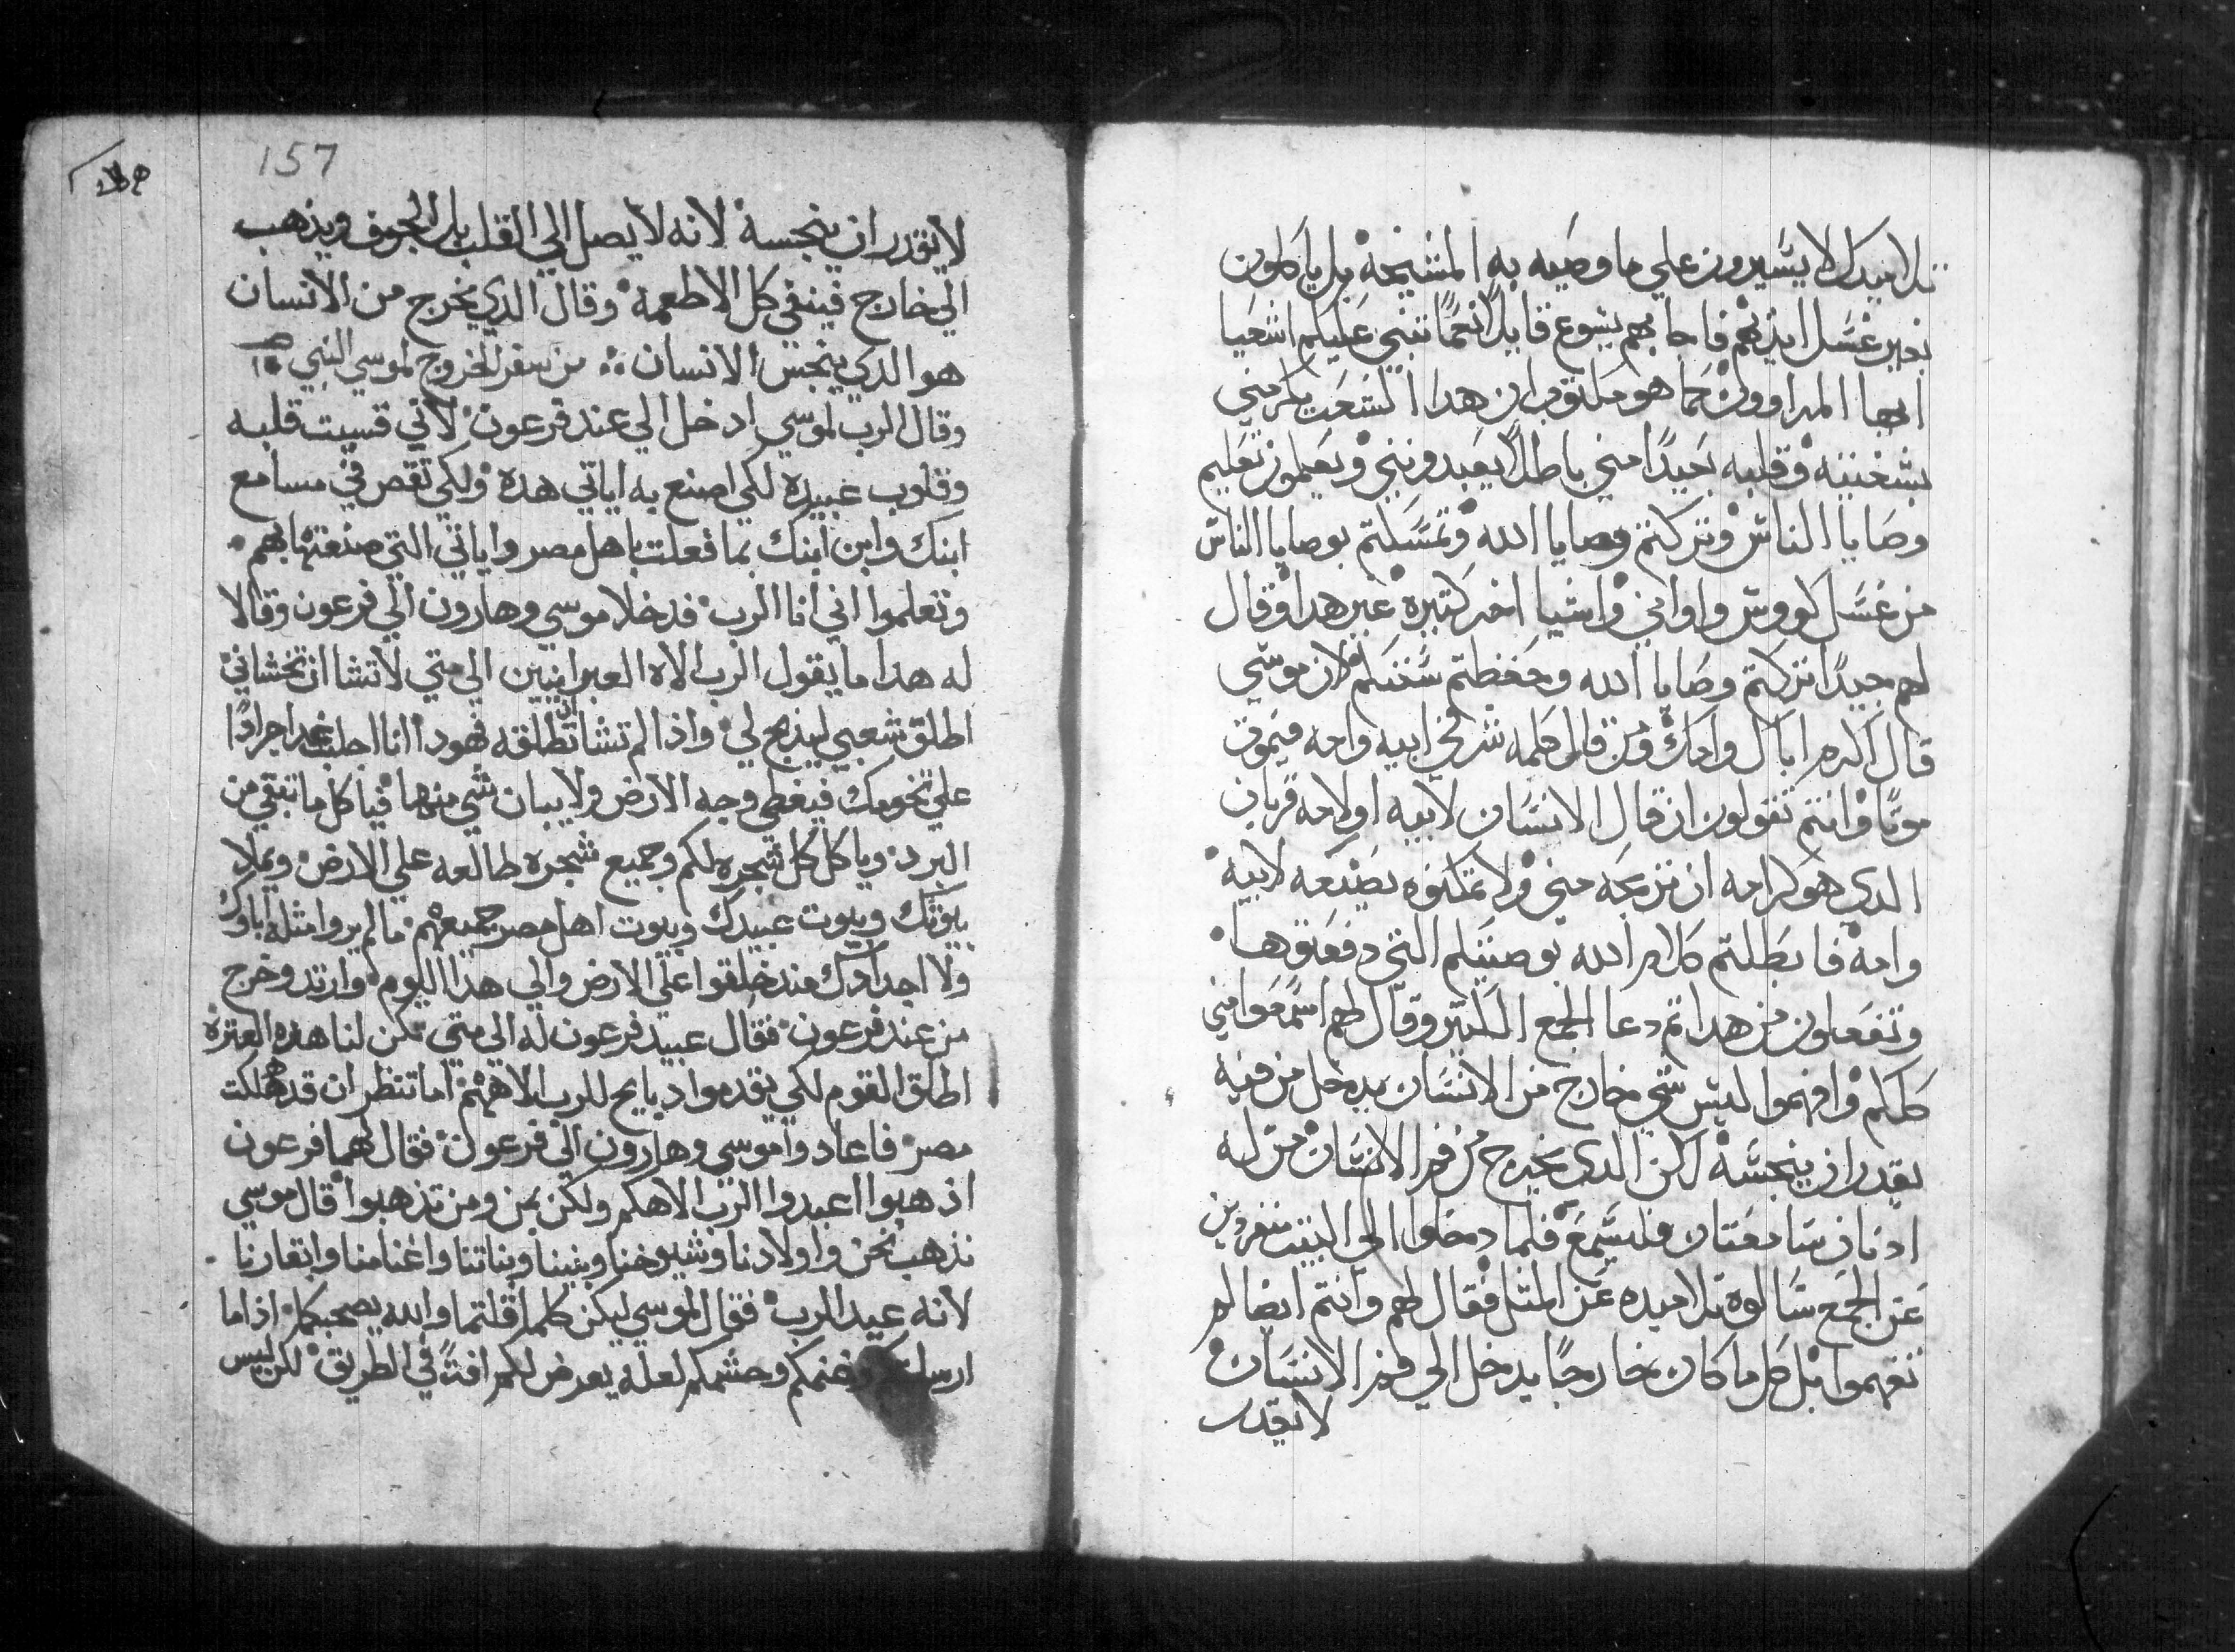 تلاميدك لا يسيرون علي ما وصيه به المشيخة بل ياكلون
بغير غسل ايديهم فاجابهم يسوع قايلا نعما تنبي عليكم اشعيا
ايها المراوون كما هو مكتوب ان هدا الشعب يكرمني
بشفتيه وقلبه بعيدًا مني باطلًا يعبدونني ويعلمون تعليم
وصايا الناس وتركتم وصايا الله وتمسكتم بوصايا الناس
من غسل كووس واواني واشيا اخر كتيرة غير هدا وقال
لهم جيدًا تركتم وصايا الله وحفظتم سنتكم لان موسي
قال اكرم اباك وامك ومن قال كلمه شر في ابيه وامه فيموت
موتًا وانتم تقولون ان قال الانسان لابيه او لامه قربان
الدي هو كرامه ان تزمعه مني ولا تتركوه يصنعه لابيه
وامه فابطلتم كلام الله بوصيتكم التي دفعتوها
وتفعلون من هدا تم دعا الجمع الكتير وقال لهم اسمعوا مني
كلكم وافهموا ليس شي خارج من الانسان يدخل من فيه
يقدر ان ينجسه لكن الدي يخرج من فم الانسان من له
ادنان سامعتان فليسمع فلما دخلوا الي البيت منفردين
عن الجمع سالوه تلاميده عن المتل فقال لهم وانتم ايضا لم
تفهموا بل كل ما كان خارجًا يدخل الي فم الانسان
لا يقدر
157
لا يقدر ان ينجسه لانه لا يصل الي القلب بل الجوف ويذهب
الي خارج فينقي كل الاطعمه وقال الدي يخرج من الانسان
هو الدي ينجس الانسان من سفر الخروج لموسي النبي
وقال الرب لموسي ادخل الي عند فرعون لاني قسيت قلبه
وقلوب عبيده لكي اصنع به اياتي هده ولكي تقص في مسامع
ابنك وابن ابنك بما فعلت باهل مصر واياتي التي صنعتها بهم
وتعلموا اني انا الرب فدخلا موسي وهارون الي فرعون وقالا
له هدا ما يقول الرب الاه العبرانيين الي متي لا تشا ان تخشاني
اطلق شعبي ليذبح لي واذا لم تشا ان تطلقه فهودا انا اجلب غدا جرادًا
علي تخومك فيغطي وجه الارض ولا يبان شي منها فياكل ما تبقي من
البرد وياكل كل شجره لكم وجميع شجره طالعه علي الارض ويملا
بيوتك وبيوت عبيدك وبيوت اهل مصر جميعهم ما لم يروا مثله اباوك
ولا اجدادك مند خلقوا علي الارض والي هدا اليوم وارتد وخرج
من عند فرعون فقال عبيد فرعون له الي متي تكن لنا هذه العثرة
اطلق القوم لكي يقدموا دبايح للرب الاههم اما تنظر ان قد هلكت
مصر فاعادوا موسي وهارون الي فرعون فقال لهما فرعون
اذهبوا اعبدوا الرب الاهكم ولكن بمن ومن تذهبوا قال موسي
نذهب نحن واولادنا وشيوخنا وبنينا وبناتنا واغنامنا وابقارنا
لانه عيد الرب فقال لموسي ليكن كلما قلتما والله يصحبكما اذا ما
وحشمكم لعله يعرض لكم افتً في الطريق لكن ليس